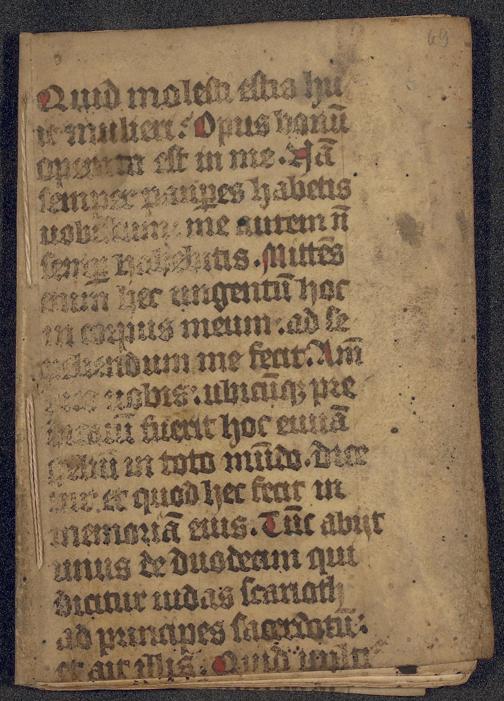 69
Quid molesti estis hu
ic mulieri: Opus bonū
operata est in me. Nā
semper paup̄es habetis
uobiscum: me autem n̄
semp̄ habebitis. Mittēs
enim hec ungentū hoc
in corpus meum: ad se
peliendum me fecit. Am̄
uobis: ubicūq; pre
fuerit hoc euuā
in toto mūdo. dice
tur et quod hec fecit in
memoriā eius. Tūc abijt
unus de duodecim qui
dicitur iudas scarioth
ad principes sacerdotū:
et ait illis. Quid uultis